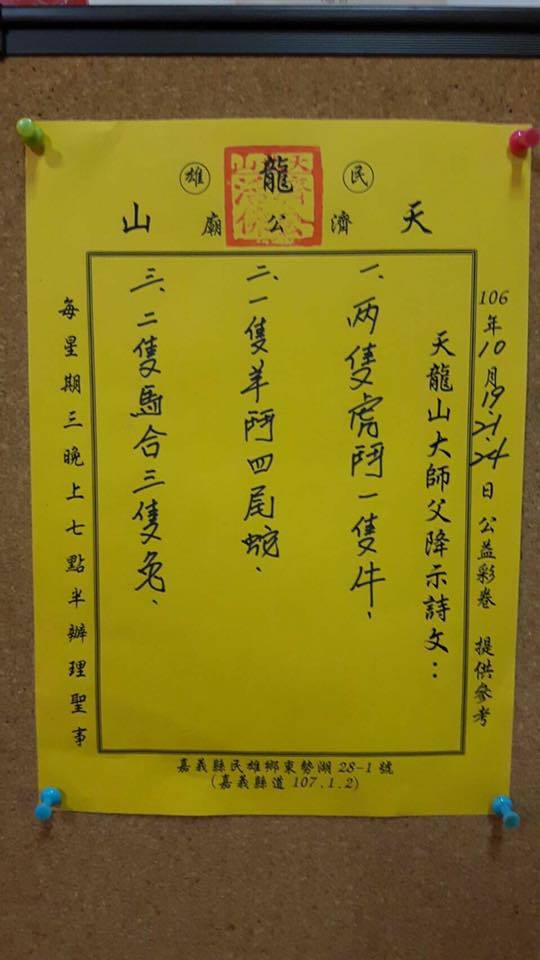 民雄
天龍山
濟公廟
106年10月19.21.24日 公益彩卷 提供參考
天龍山大師父降示詩文：
一、两隻虎鬥一隻牛、
二、一隻羊鬥四尾蛇、
三、二隻馬合三隻兔、
每星期三晚上七點半辦理聖事
嘉義縣民雄鄉東勢湖28-1號
(嘉義縣道107.1.2)